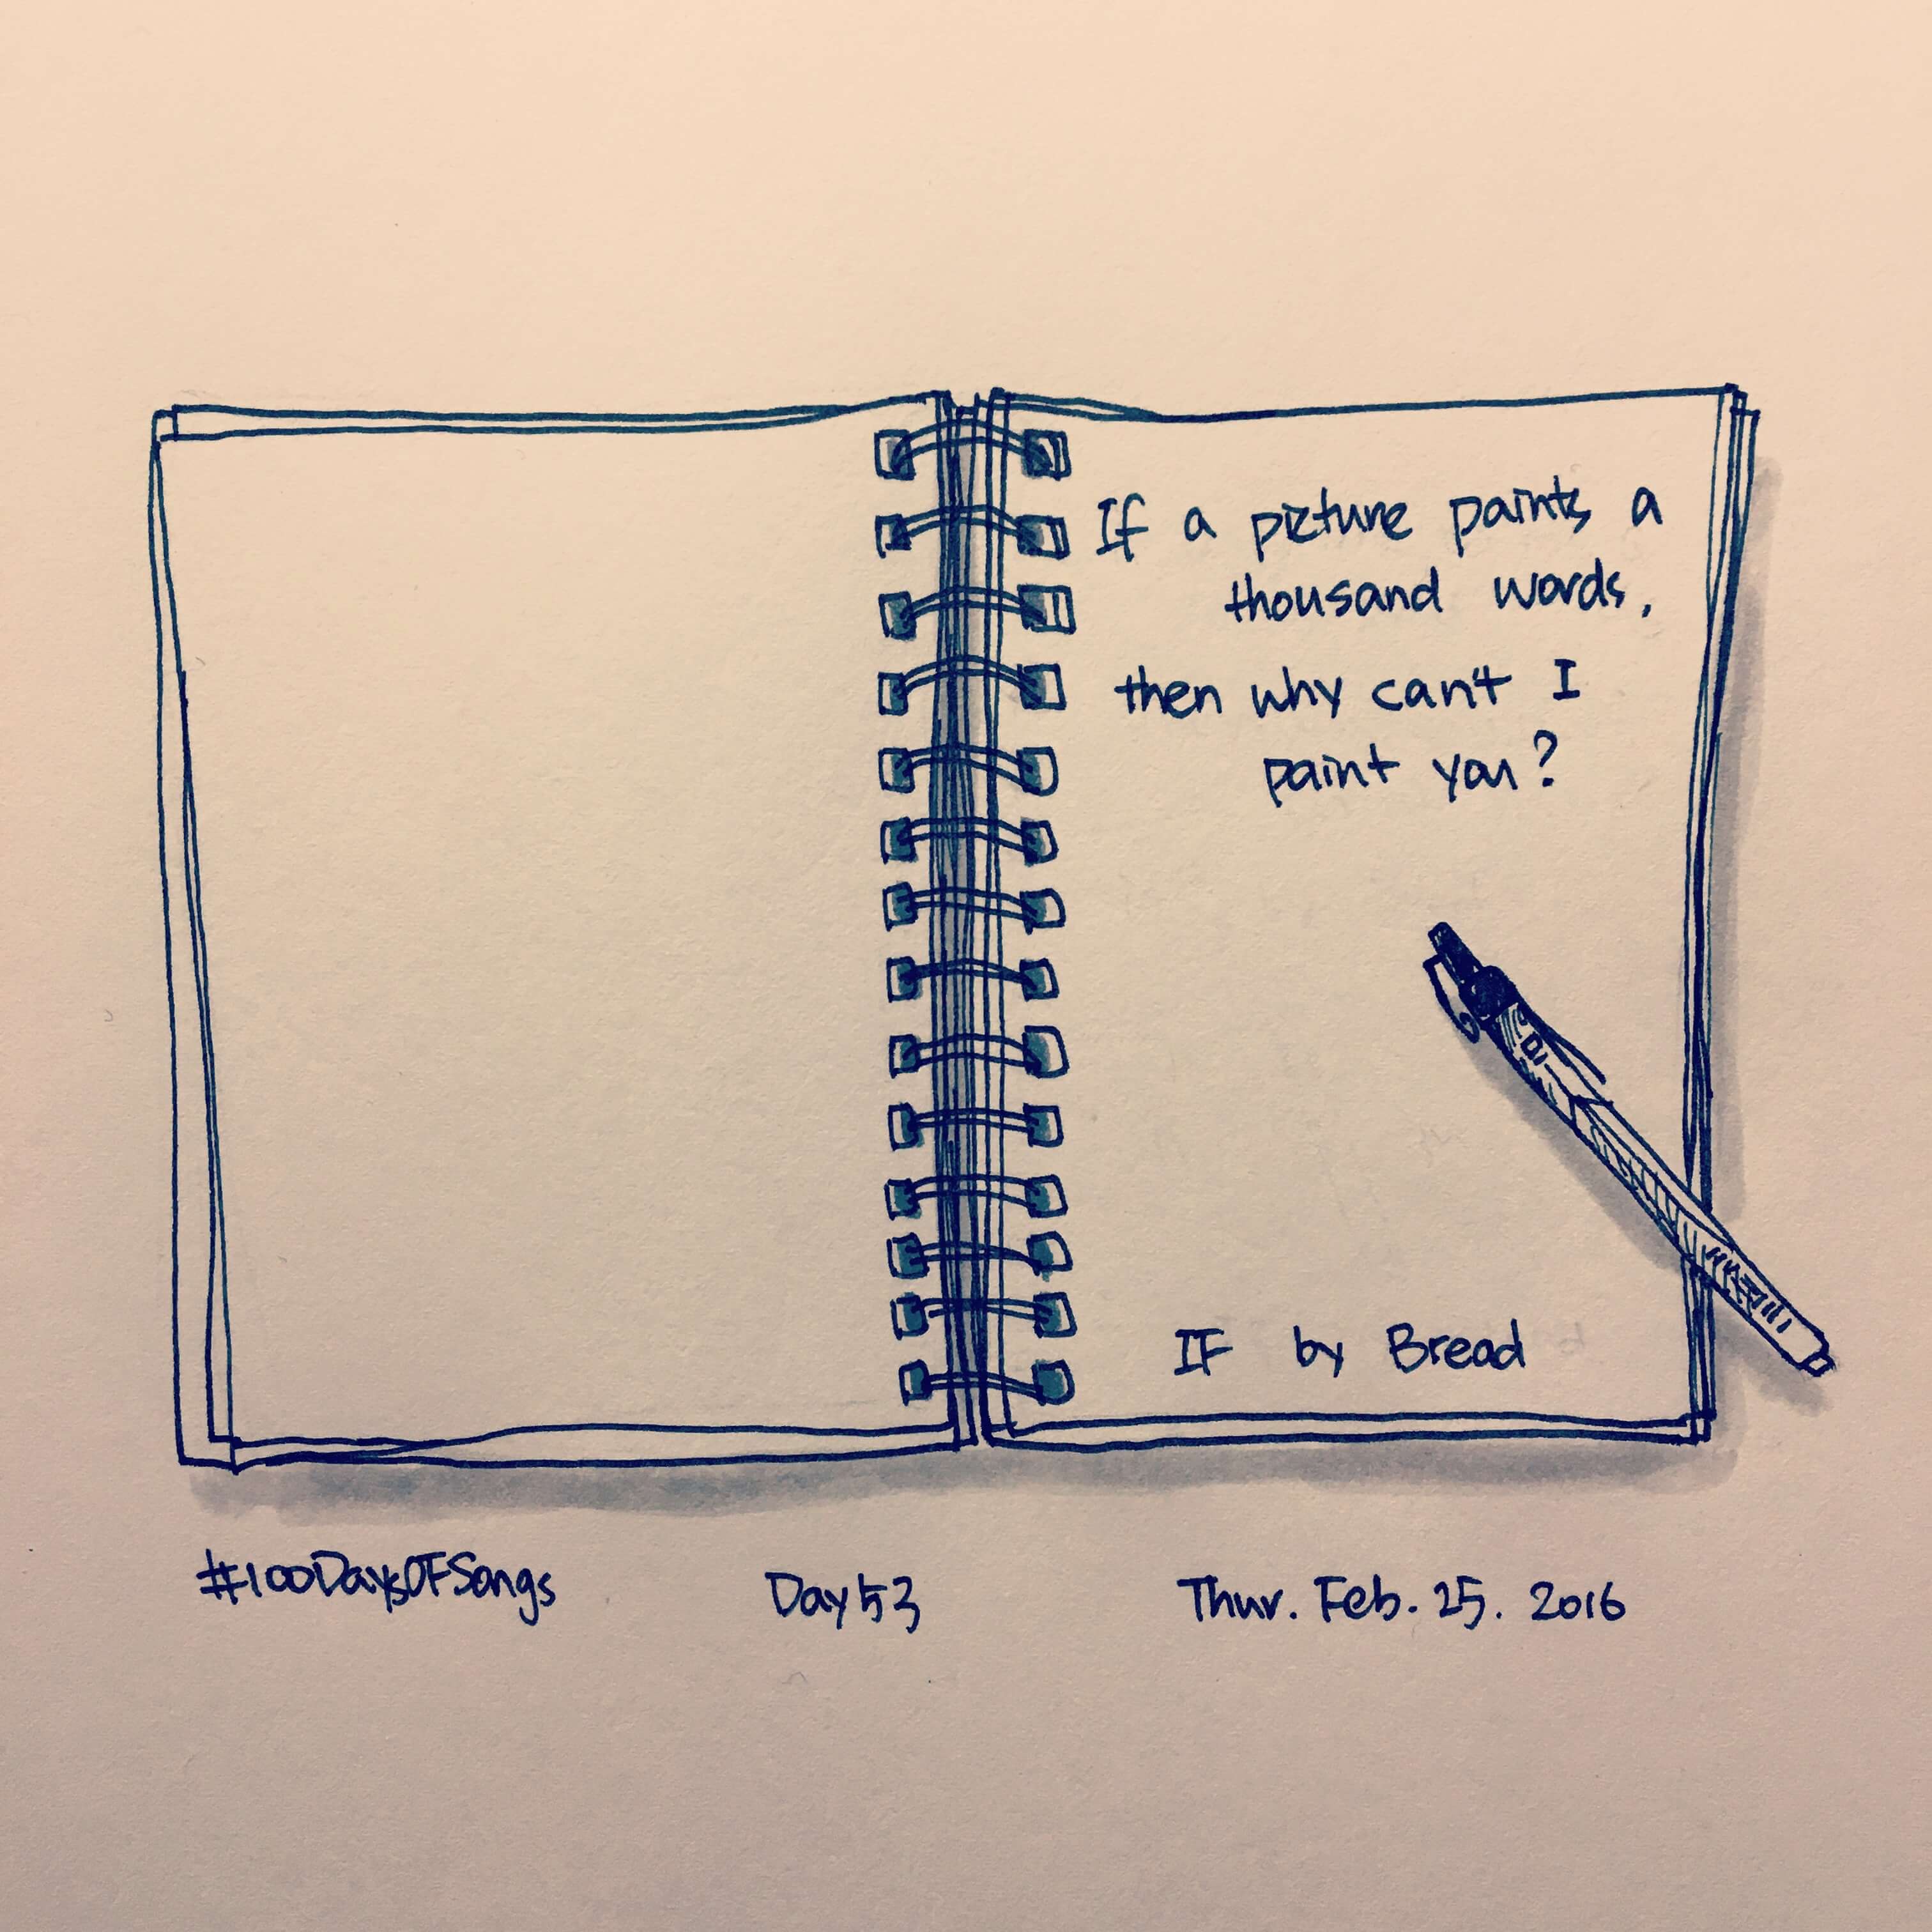 If a picture paints a
thousand words,
then why can't I
paint you?
IF by Bread
#100DaysOFSongs
Day 53
Thur. Feb. 25. 2016